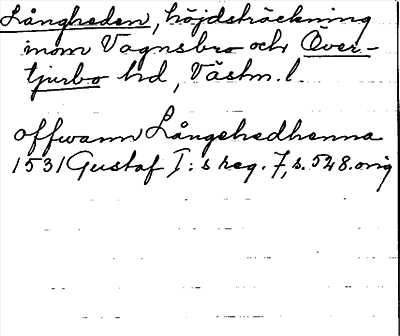 Långheden, höjdsträckning
inom Vagnsbro och Över-
tjurbo hd, Västm. l.
offwann Långehedhenna
1531 Gustaf I:s reg. 7, s. 528. orig